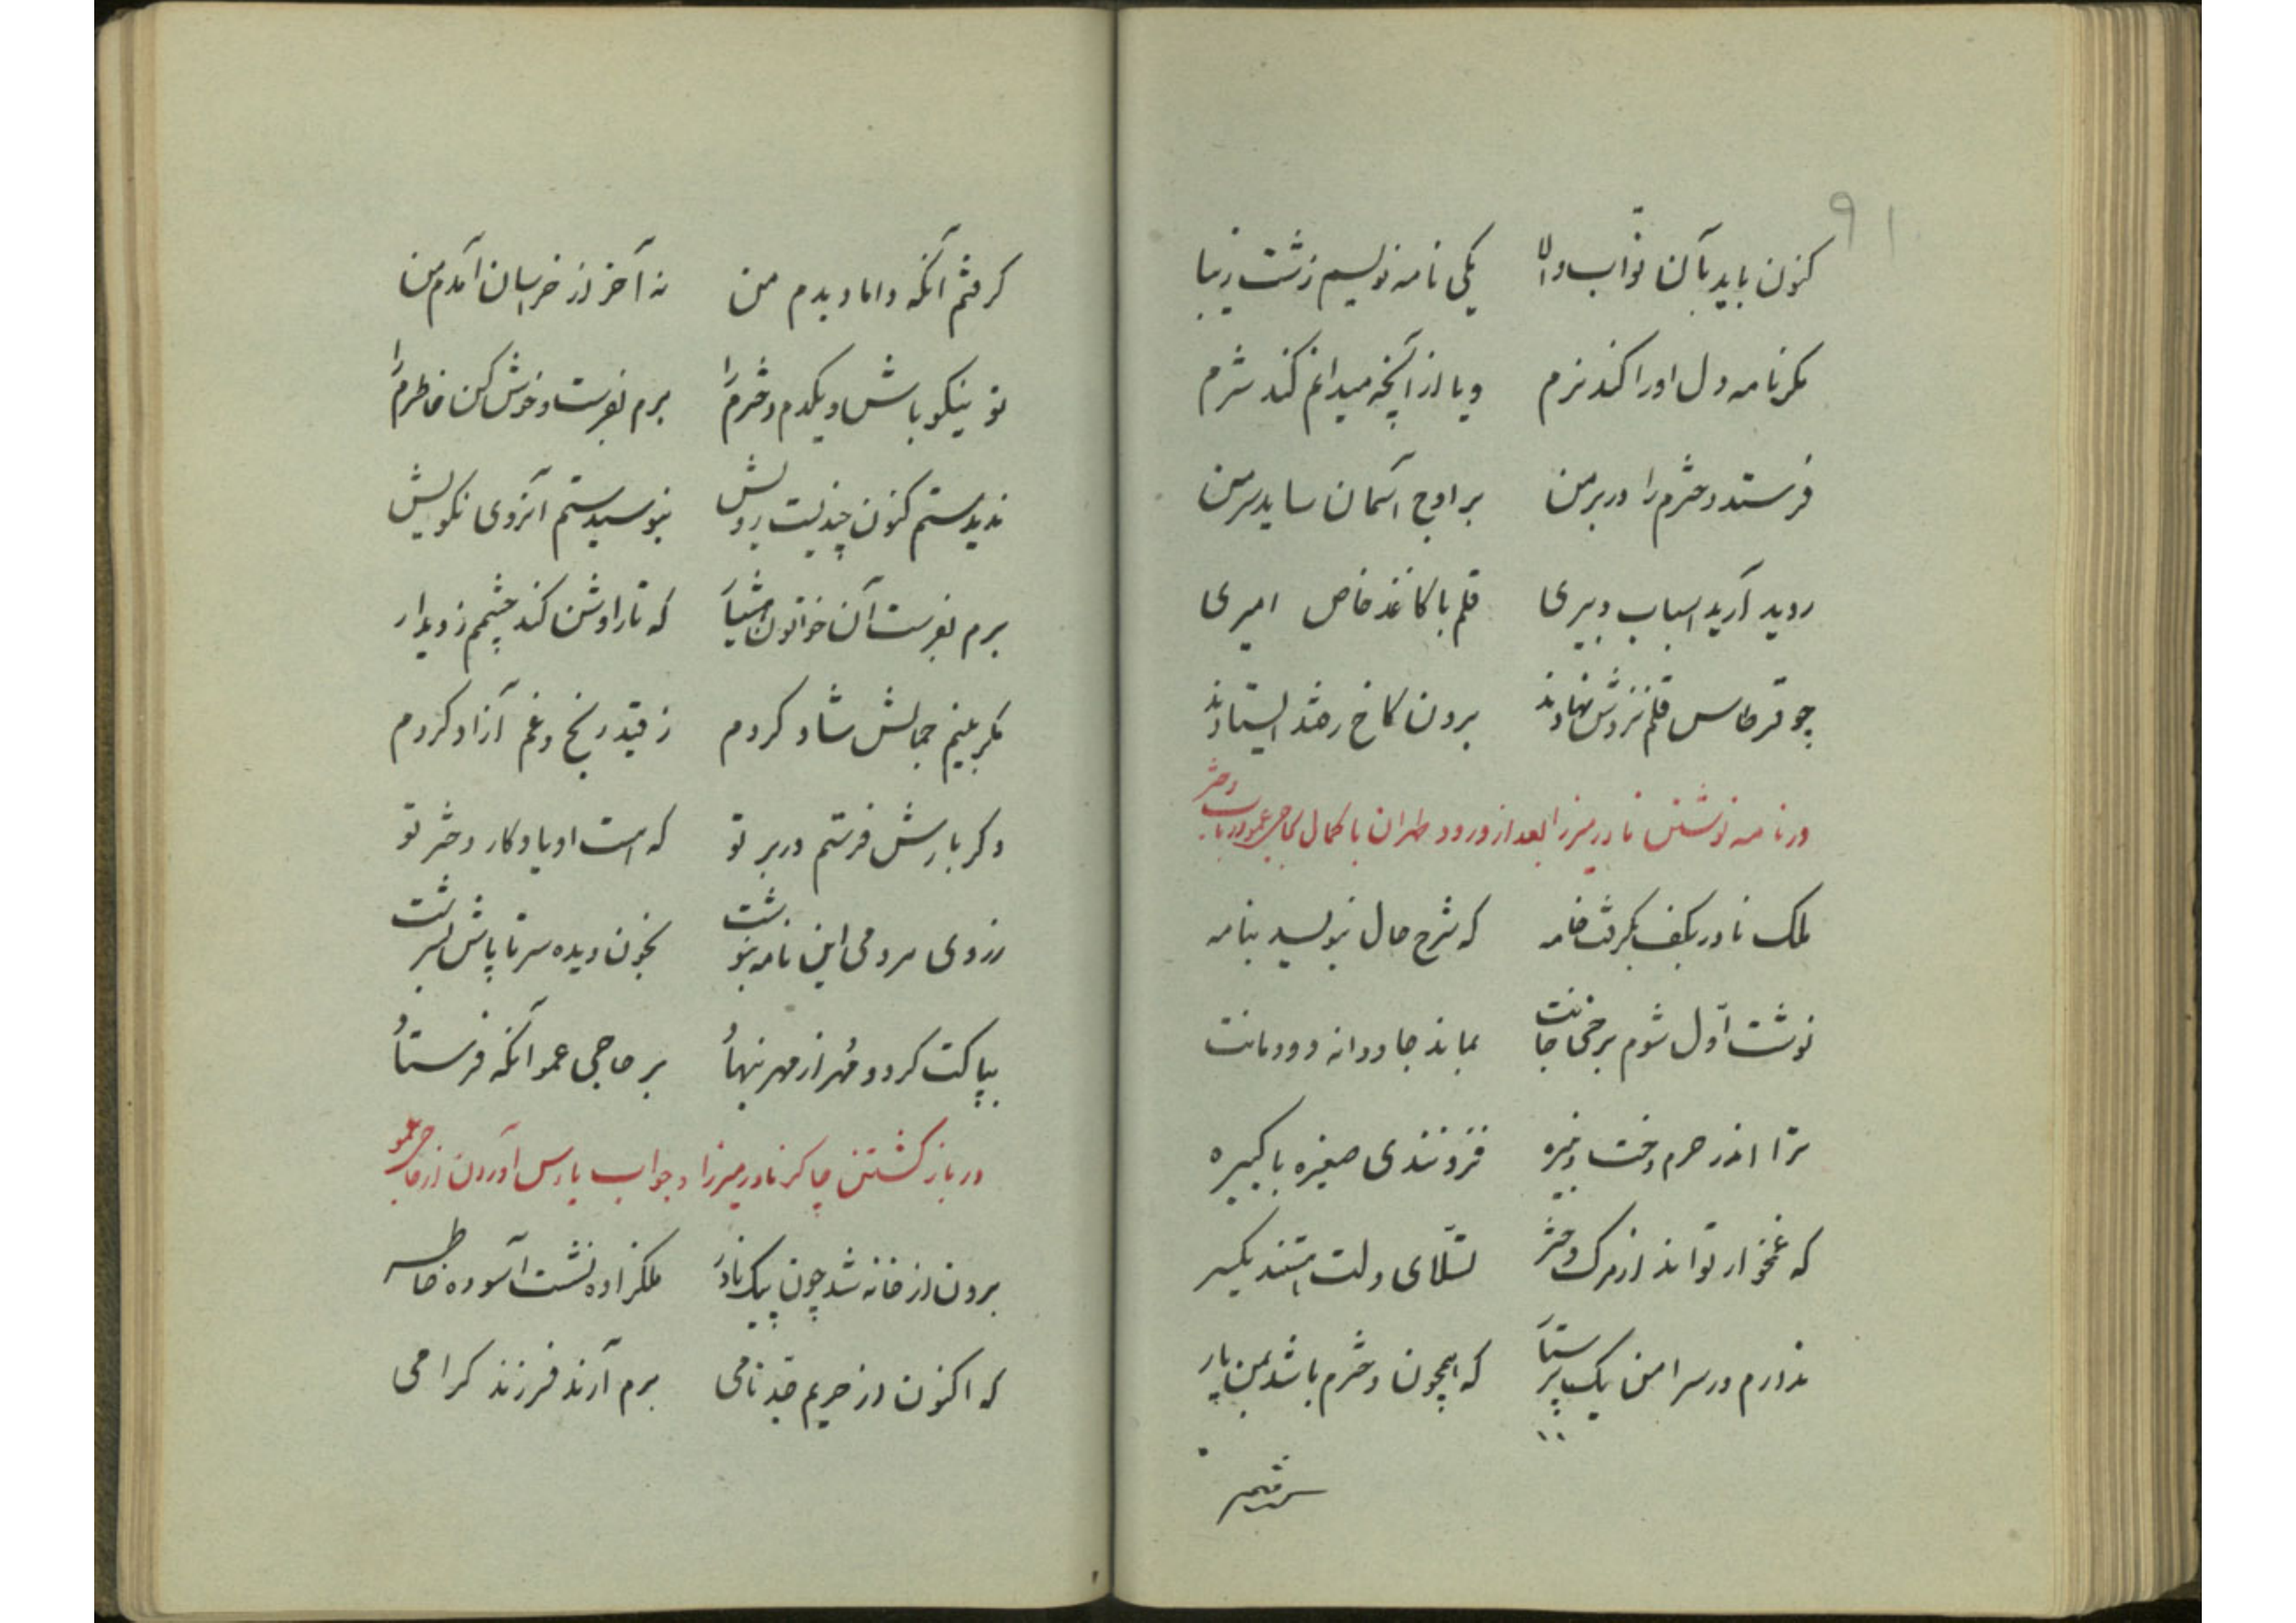 ۹۱
کنون باید بآن نوّاب والا یکی نامه نویسم زشت زیبا
مگر نامه دل او را کند نرم ویا از آنچه میدانم کند شرم
فرستد دخترم را در بر من بر اوج آسمان ساید سر من
روید آرید اسباب دبیری قلم با کاغذ خاص امیری
چو قرطاس قلم نزدش نهادند برون کاخ رفتند ایستادند
در نامه نوشتن نادر میرزا بعد از ورود طهران با کمال بحاجی عمو در باب دختر
ملک نادر بکف بگرفت خامه که شرح حال بنویسد بنامه
نوشت اوّل شوم برخی جانت بماند جاودانه دودمانت
ترا اندر حرم دخت و نبیره فزونندی صغیره با کبیره
که غمخوار تواند از مرگ دختر تسلّای دلت استند یکسر
ندارم در سرا من یک پرستار که همچون دخترم باشد بمن یار
گرفتم آنکه داماد بدم من نه آخر از خراسان آمدم من
تو نیکو باش و یکدم دخترم را برم بفرست و خوش کن خاطرم را
ندیدستم کنون چندیست رویش نبوسیدستم آنروی نکویش
برم بفرست آن خواتون که تا روشن کند چشمم ز دیدار
مگر بینم جمالش شاد گردم ز قید رنج و غم آزاد گردم
دگر بارش فرستم در بر تو که است او یادگار دختر تو
ز روی مردمی این نامه بنوشت بخون دیده سر تا پاش بسرشت
بپاکت کرد و مُهر از مهر بنهاد بر حاجی عمو آنگه فرستاد
در باز گشتن چاکر نادر میرزا و جواب یارس آوردن از حاجی عمو
برون از خانه شد چون پیک نادر ملکزاده نشست آسوده خاطر
که اکنون از حریم جدّ نامی برم آرند فرزند گرامی